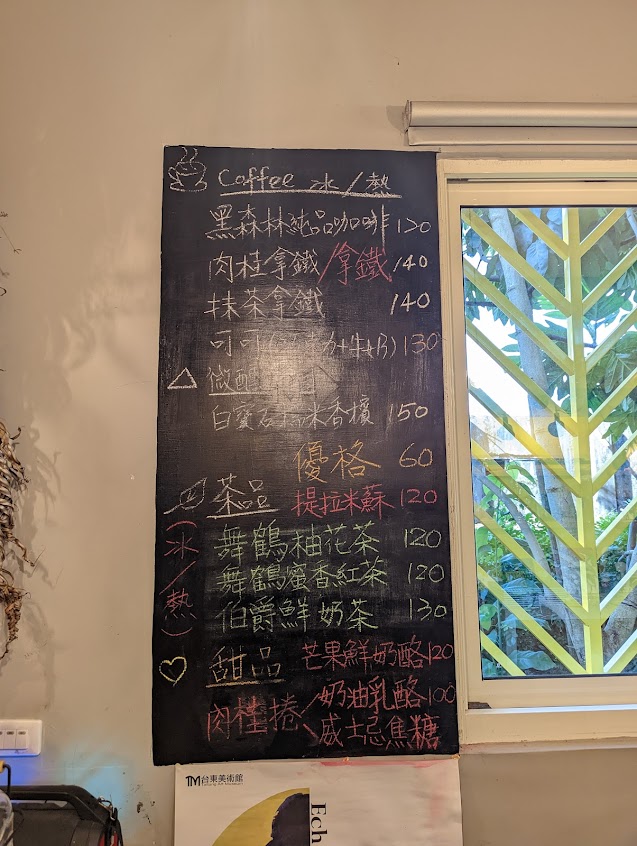 Coffee 冰/熱
黑森林純品咖啡 120
肉桂拿鐵/拿鐵 140
抹茶拿鐵 140
可可 130
微醺
白寶石 香檳 150
優格 60
茶品 提拉米蘇 120
(冰/熱)
舞鶴柚花茶 120
舞鶴蜜香紅茶 120
伯爵鮮奶茶 130
甜品 芒果鮮奶酪 120
肉桂捲/奶油乳酪 100
\威士忌焦糖
TM台東美術館
Taitung Art Museum
Ech